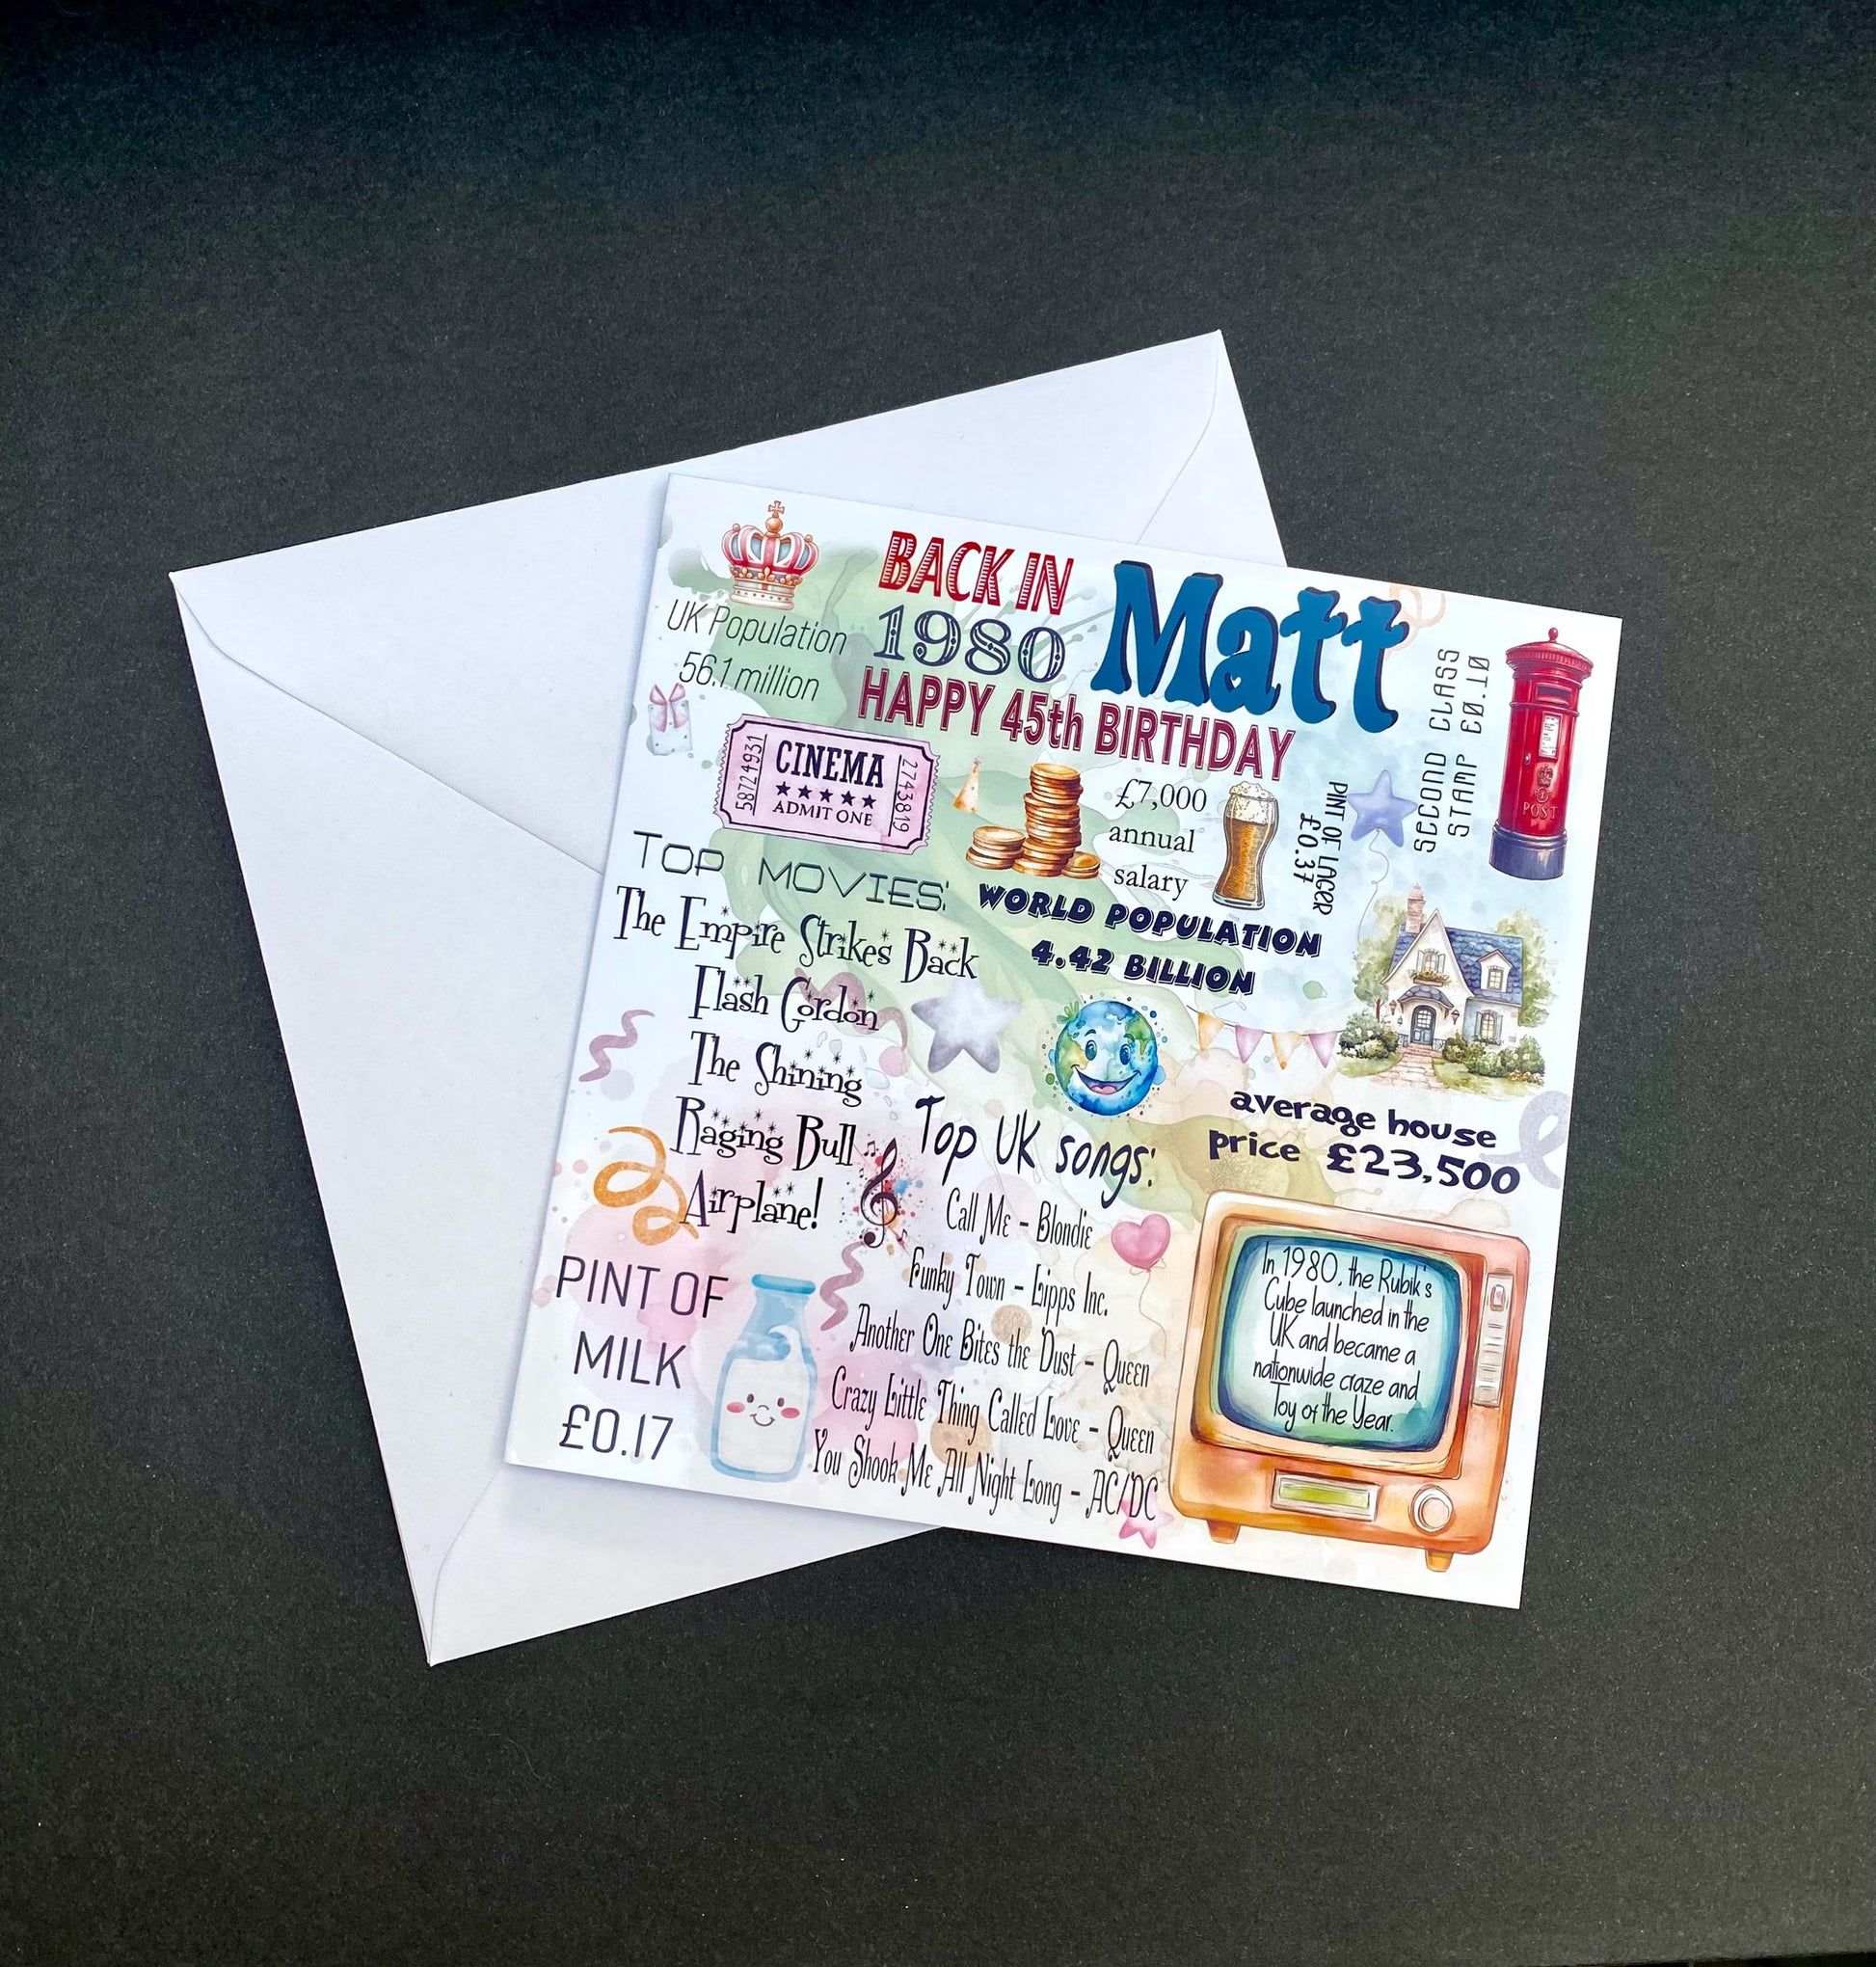 BACK IN
1980
Matt
HAPPY 45th BIRTHDAY
UK Population
56.1 million
CINEMA
ADMIT ONE
58724931
2743819
£7,000
annual
salary
PINT OF LAGER
£0.37
SECOND CLASS
STAMP £0.10
POST
TOP MOVIES:
The Empire Strikes Back
Flash Gordon
The Shining
Raging Bull
Airplane!
WORLD POPULATION
4.42 BILLION
average house
price £23,500
Top UK songs:
Call Me - Blondie
Funky Town - Lipps Inc.
Another One Bites the Dust - Queen
Crazy Little Thing Called Love - Queen
You Shook Me All Night Long - AC/DC
PINT OF
MILK
£0.17
In 1980, the Rubik's
Cube launched in the
UK and became a
nationwide craze and
Toy of the Year.